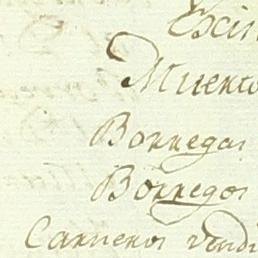 Muerto
Borregas
Borregos
Carneros vendi